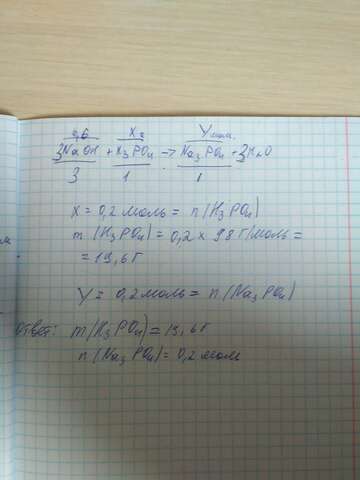 0,6 X г Y моль
3NaOH + H₃PO₄ → Na₃PO₄ + 3H₂O
3 1 1
X = 0,2 моль = n(H₃PO₄)
m(H₃PO₄) = 0,2 x 98 г/моль =
= 19,6 г
Y = 0,2 моль = n(Na₃PO₄)
Ответ: m(H₃PO₄) = 19,6 г
n(Na₃PO₄) = 0,2 моль